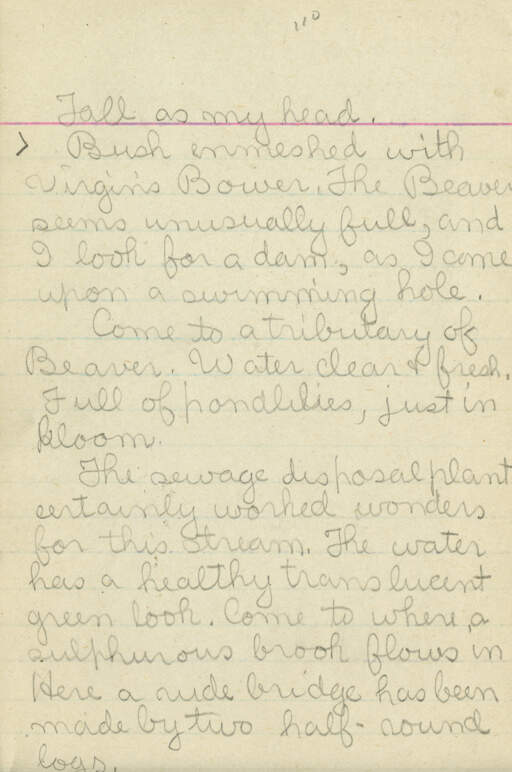 110
Tall as my head.
> Bush enmeshed with
Virgin's Bower. The Beaver
seems unusually full, and
I look for a dam, as I come
upon a swimming hole.
Come to a tributary of
Beaver. Water clear & fresh.
Full of pondlilies, just in
bloom.
The sewage disposal plant
certainly worked wonders
for this stream. The water
has a healthy translucent
green look. Come to where a
sulphurous brook flows in
Here a rude bridge has been
made by two half-round
logs.